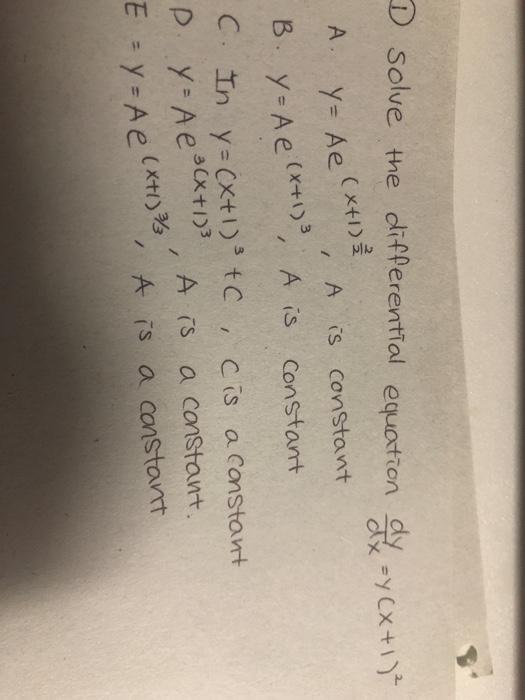 ① Solve the differential equation dy/dx = y(x+1)²
A. y = Ae^(x+1)^3/2, A is constant
B. y = Ae^(x+1)³, A is constant
C. In y = (x+1)³ + C, C is a constant
D. y = Ae^3(x+1)³, A is a constant.
E = y = Ae^(x+1)^3/3, A is a constant